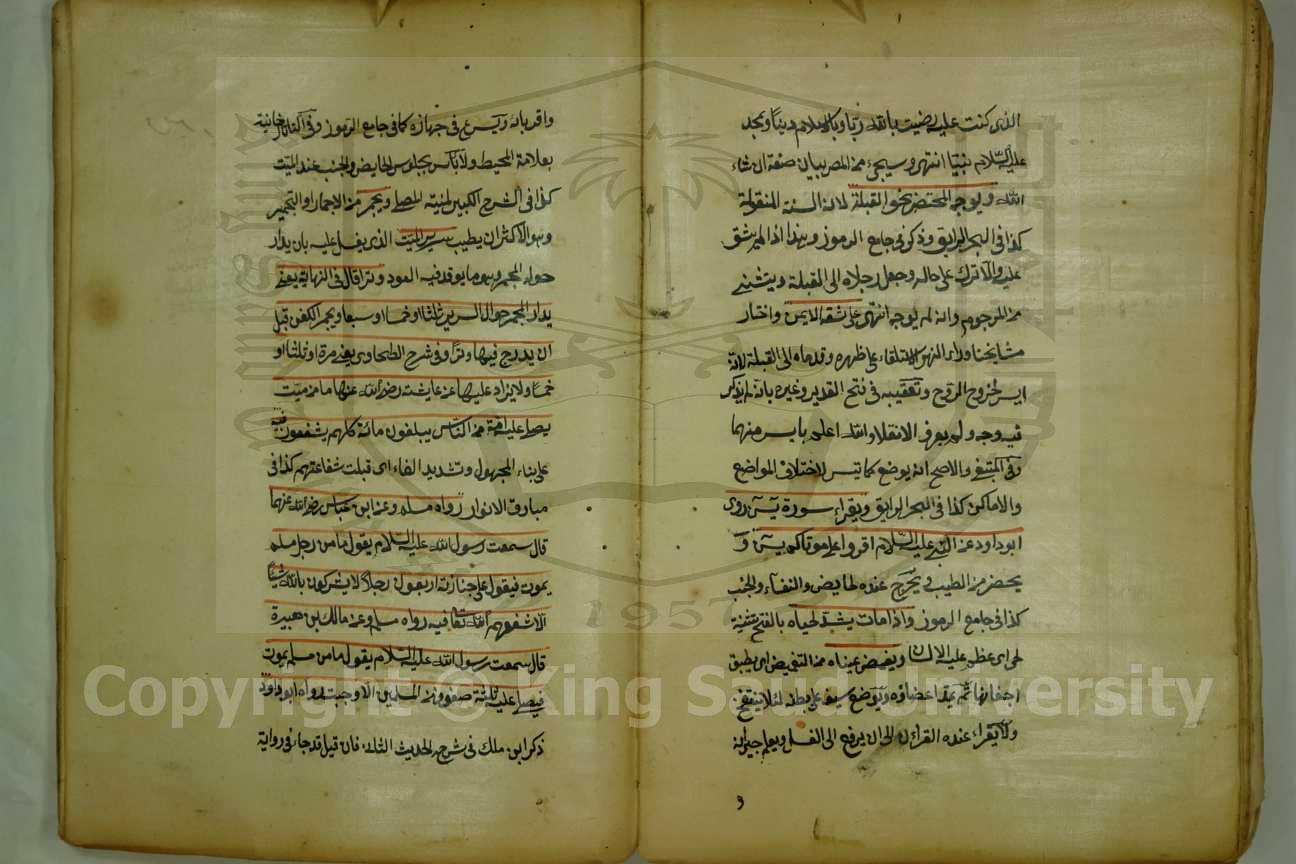 الذى كنت عليه رضيت بالله ربا وبالاسلام دينا وبمحمد
عليه السلام نبيا انتهى وسيجئ من المص بيان صفة ان شاء
الله ويوجه المحتضر نحو القبلة لانه السنة المنقولة
كذا فى البحر الرايق وذكر فى جامع الرموز وهذا اذا لم يشق
عليه والا ترك على حاله وجعل رجلاه الى القبلة ويستثنى
من المرجوم وانه لم يوجه انتهى على شقه الايمن واختار
مشايخنا وراء النهر الاستلقاء على ظهره وقدماه الى القبلة لانه
ايسر لخروج الروح وتعقبه فى فتح القدير وغيره بانه لم يذكر
فيه وجه ولم يعرف الا نقلا والله اعلم بايسر منهما
وفى المبتغى والاصح انه يوضع كما تيسر لاختلاف المواضع
والاماكن كذا فى البحر الرايق ويقراء سورة يس روى
ابو داود عن النبى عليه السلام اقروا على موتاكم يس و
يحضر من الطيب ويخرج عنده الحايض والنفساء والجنب
كذا فى جامع الرموز واذا مات يشد لحياه بالفتح تثنية
لحى اى عظم عليه الاسنان ويغمض عيناه من التغميض اى يطبق
اجفانها ثم يمد اعضاؤه ويوضع سيف على بطنه لئلا ينتفخ
ولا يقراء عنده القرآن الى ان يرفع الى الغسل ويعلم جيرانه
و
واقرباؤه ويسرع فى جهازه كما فى جامع الرموز وفى التاتارخانية
بعلامة المحيط ولا بأس بجلوس الحايض والجنب عند الميت
كذا فى الشرح الكبير لمنية المصلى ويجمر من الاجمار او التجمير
وهو الاكثر ان يطيب سرير الميت الذى يغسل عليه بان يدار
حوله المجمر وهو ما يوقد فيه العود وترا قال فى النهاية يعنى
يدار المجمر حوال السرير ثلثا او خمسا او سبعا ويجمر الكفن قبل
ان يدرج فيها وترا وفى شرح الطحاوى يعنى مرة او ثلثا او
خمسا ولا يزاد عليها عن عايشة رضى الله عنها ما من ميت
يصلى عليه امة من الناس يبلغون مائة كلهم يشفعون فيه
على بناء المجهول وتشديد الفاء اى قبلت شفاعتهم كذا فى
مبارق الانوار رواه مسلم وعن ابن عباس رضى الله عنهما
قال سمعت رسول الله عليه السلام يقول ما من رجل مسلم
يموت فيقول على جنازته اربعون رجلا لا يشركون بالله شيئا
الا شفعهم الله تعا فيه رواه مسلم وعن مالك بن هبيرة
قال سمعت رسول الله عليه السلام يقول ما من مسلم يموت
فيصلى عليه ثلثة صفوف من المسلمين الا وجبت رواه ابو داود
ذكر ابن ملك فى شرحه لحديث الثلث فان قيل قد جاء فى رواية
1957
Copyright © King Saud University